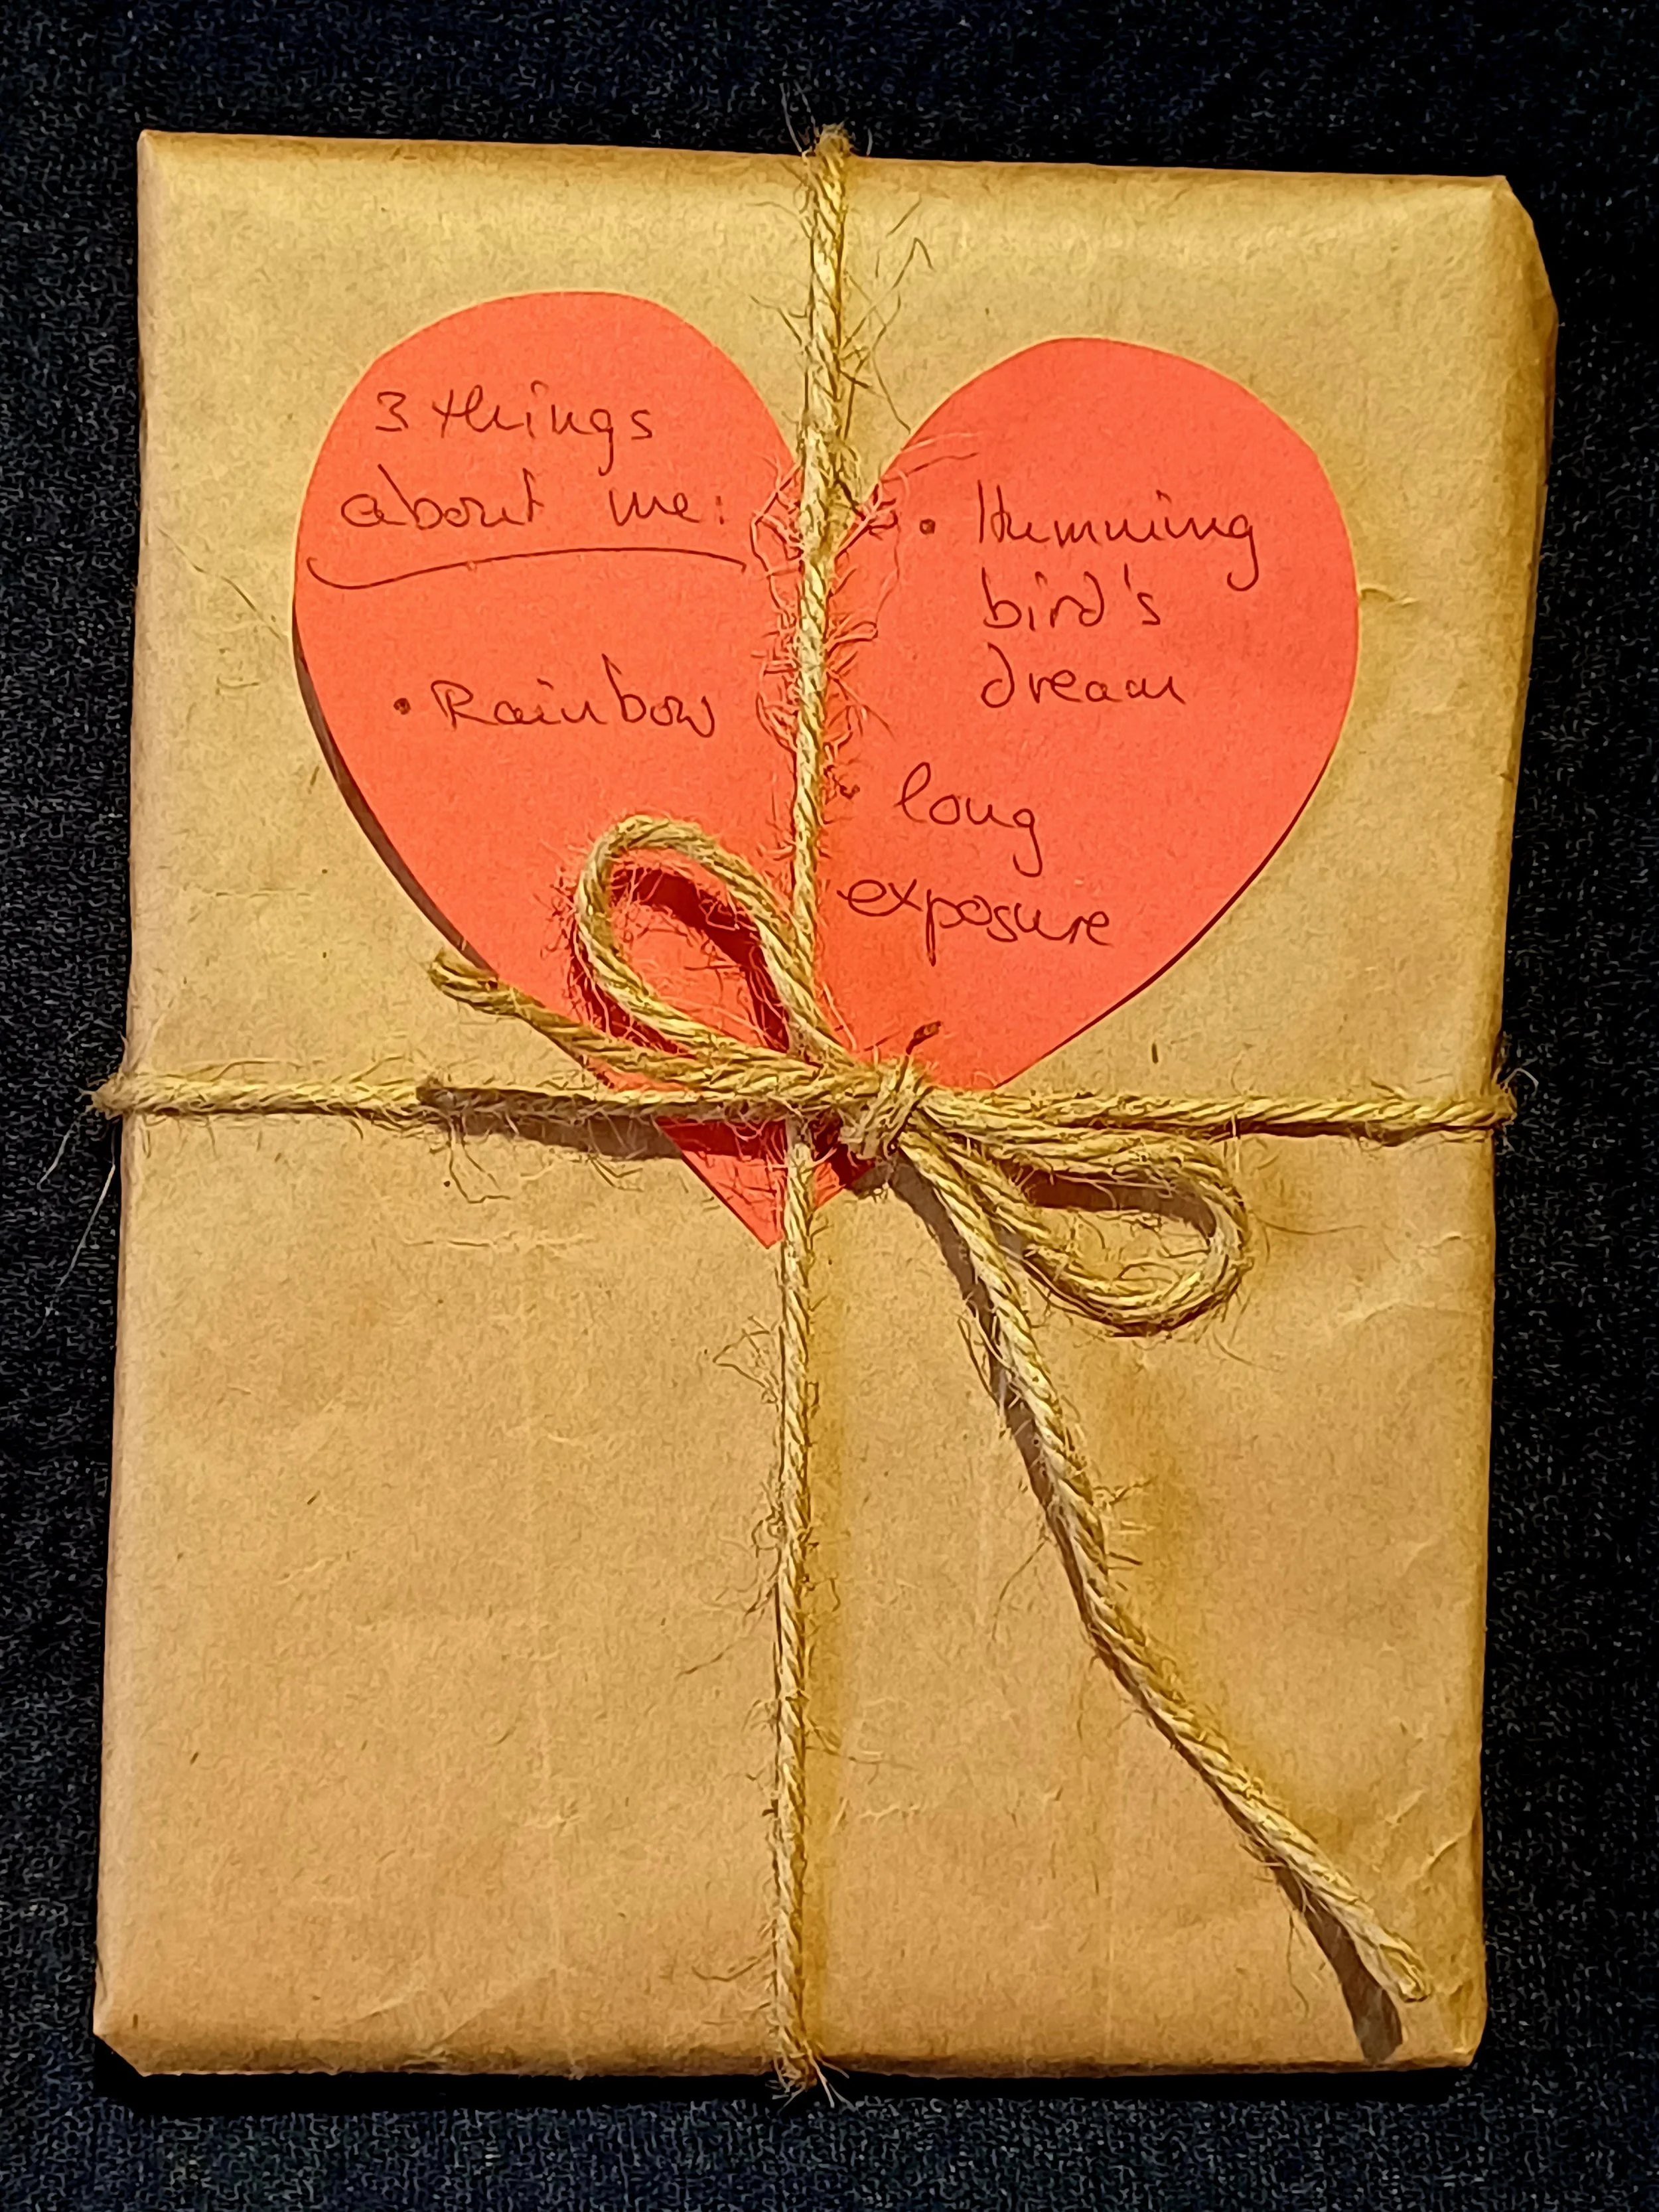 3 things
about me:
• Rainbow
• Humming
bird's
dream
• long
exposure